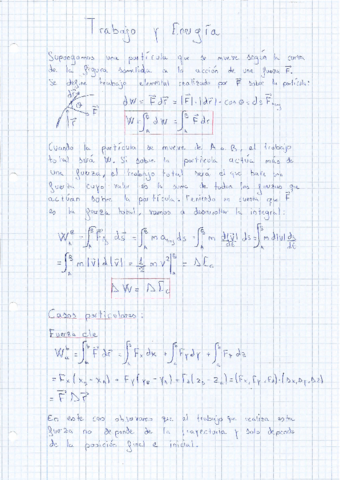 Trabajo y Energía
Supongamos una partícula que se mueve según la curva
de la figura sometida a la acción de una fuerza F⃗.
Se define trabajo elemental realizado por F⃗ sobre la partícula:
dW = F⃗ dr⃗ = |F⃗| · |dr⃗| · cos θ = ds F_tg
W = ∫_A^B dW = ∫_A^B F⃗ dr⃗
Cuando la partícula se mueve de A a B, el trabajo
total será W. Si sobre la partícula actúa más de
una fuerza, el trabajo total será el que hace una
fuerza cuyo valor es la suma de todas las fuerzas que
actúan sobre la partícula. Teniendo en cuenta que F⃗
es la fuerza total, vamos a desarrollar la integral:
= ∫_A^B m |v⃗| d|v⃗| = 1/2 m v² |_A^B = ΔE_c
ΔW = ΔE_c
Casos particulares:
Fuerza cte
W_A^B = ∫_A^B F⃗ dr⃗ = ∫_A^B F_x dx + ∫_A^B F_y dy + ∫_A^B F_z dz
= F_x (x_B - x_A) + F_y (y_B - y_A) + F_z (z_B - z_A) = (F_x, F_y, F_z) · (Δx, Δy, Δz)
= F⃗ Δr⃗
En este caso observamos que el trabajo que realiza esta
fuerza no depende de la trayectoria y solo depende
de la posición final e inicial.